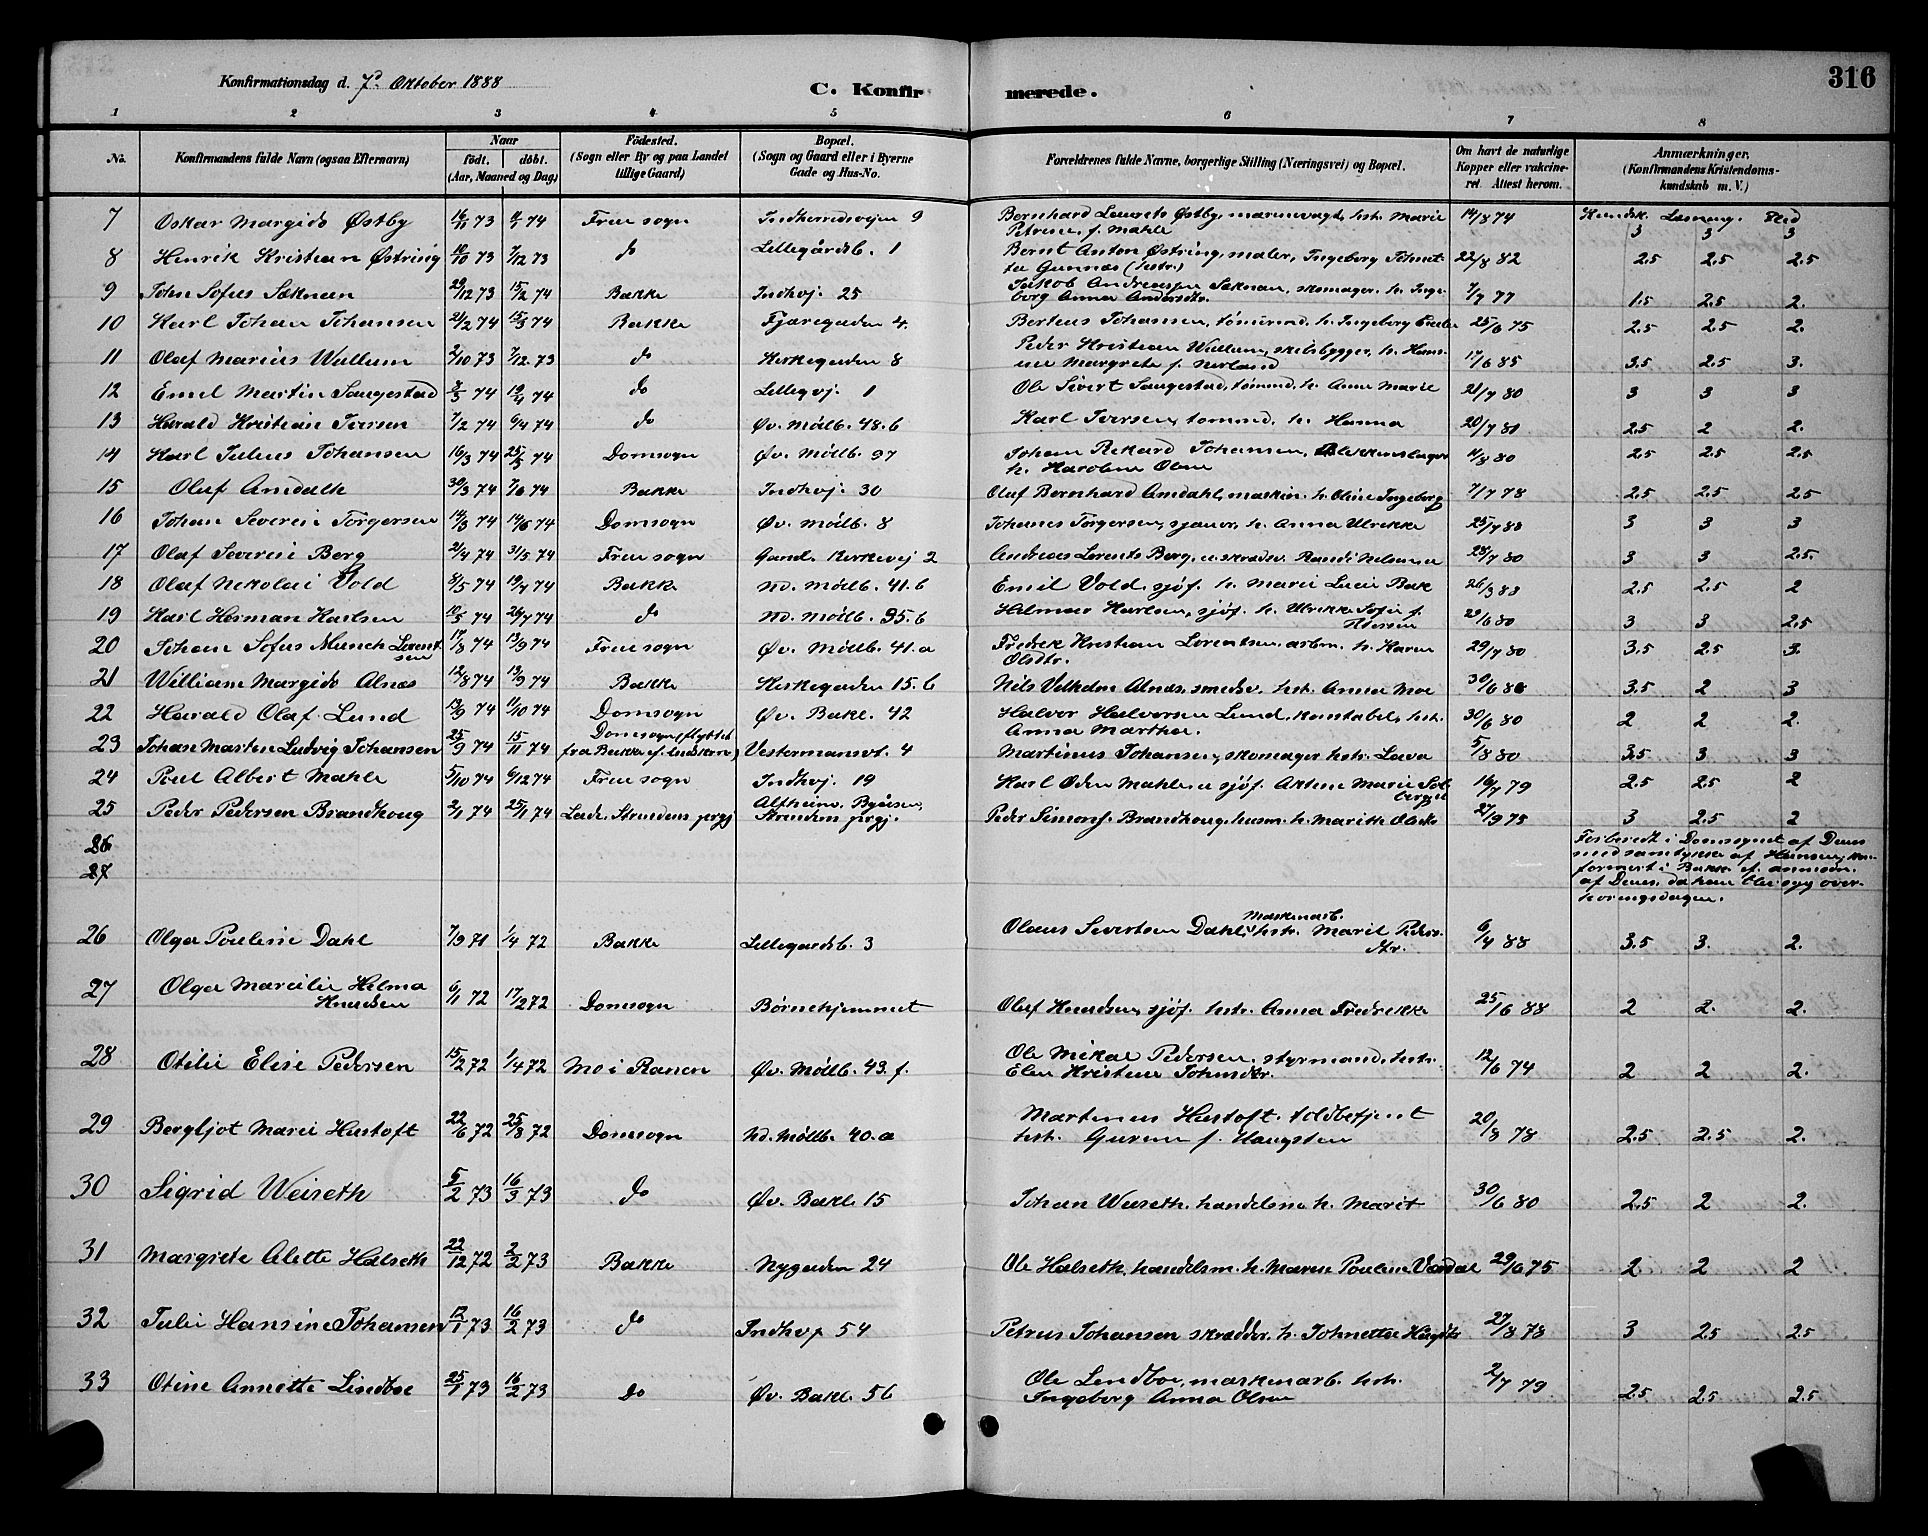 316
Konfirmationsdag d. 7de Oktober 1888
C. Konfirmerede.
1 2 3 4 5 6 7 8
No. | Konfirmandens fulde Navn (ogsaa Efternavn) | Naar født. døbt. (Aar, Maaned og Dag) | Fødested. (Sogn eller By og paa Landet tillige Gaard) | Bopæl. (Sogn og Gaard eller i Byerne Gade og Hus-No. | Forældrenes fulde Navne, borgerlige Stilling (Næringsvei) og Bopæl. | Om havt de naturlige Kopper eller vakcineret. Attest herom. | Anmærkninger. (Konfirmandens Kristendomskundskab m. V.)
Kundsk. Læsning. Flid
7 Oskar Margido Østby 16/11 73 74 Frue sogn Indherredsvejen 9 Bernhard Laurets Østby, marinevagt, hstr. Marie Petrine f. Mahle 14/8 74 3 3 3
8 Henrik Kristian Østring 10/10 73 7/12 73 do Lillegårdsb. 1 Bernt Anton Østring, maler, Ingeborg Gunnæs (hstr.) 22/8 82 2.5 2.5 2.5
9 John Sofus Saknæn 29/12 73 15/2 74 Bakke Indhvj. 25 Jakob Andreas Saknan, skomager, h. Ingeborg Anna Andersdtr. 7/7 77 1.5 2.5 2.
10 Karl Johan Johansen 21/2 74 15/3 74 Bakke Fjæregaden 4. Berteus Johansen, tømmrmd. h. Ingeborg 25/6 75 2.5 2.5 2.
11 Olaf Marius Wullum 2/10 73 7/12 73 do Kirkegaden 8 Peder Kristian Wullum, skibsbygger, h. Hansine Margrete f. Nerland 17/6 85 3.5 2.5 3.
12 Emil Martin Saugestad 8/3 74 19/4 74 do Lillegvj. 1 Ole Sivert Saugestad, tømmd. h. Anne Marie 21/7 80 3 3 3
13 Harald Kristian Iversen 7/2 74 6/4 74 do Øv. Møllb. 48.b Karl Iversen, tømmd. h. Hanna 20/7 81 2.5 2 2.
14 Karl Julius Johansen 16/3 74 25/5 74 Domsogn Øv. Møllb. 97 Johan Rikard Johansen, Blikkenslager h. Karoline Olsen 11/8 80 2.5 2.5 2.5
15 Olaf Amdahl 30/3 74 7/6 74 Bakke Indhvj. 30 Olaf Bernhard Amdahl, maskin. h. Oline Ingeborg 7/7 78 2.5 2.5 2.5
16 Johan Severin Torgersen 14/3 74 14/6 74 Domsogn Øv. Møllb. 8 Johanes Torgersen, sjauer, h. Anna Ulrikke 25/7 88 3 3 3
17 Olaf Severin Berg 21/4 74 31/5 74 Frue sogn Gamle Kirkevej 2 Andreas Lorents Berg, skrædder. Randi Nelsine 28/7 80 3 3 2.5.
18 Olaf Nikolai Vold 3/5 74 19/7 74 Bakke Nd. Møllb. 41.b Emil Vold, sjøf. h. Marie Lucie Bak 26/3 83 2.5 2.5 2
19 Karl Herman Karlsen 10/5 74 26/7 74 do Nd. Møllb. 35.b Helmer Karlsen, sjøf. h. Ulrikke Sofie f. 29/6 80 3 3 2.5
20 Johan Sofus Munch Lorentsen 17/8 74 13/9 74 Frue sogn Øv. Møllb. 41.a Fredrik Kristian Lorentsen, arbm. h. Karen Olsdtr. 29/7 80 3.5 2.5 3.
21 William Margido Alnæs 12/8 74 13/9 74 Bakke Kirkegaden 15.b Nils Vilhelm Alnæs, smedsv. hstr. Anna Moe 30/6 80 3.5 2 3
22 Harald Olaf Lund 13/9 74 11/10 74 Domsogn Øv. Bakl. 42 Halvor Halvorsen Lund, konstabel, hstr. Anna Marthea. 30/6 80 2 2 2.
23 Johan Martin Ludvig Johansen 25/9 74 15/11 74 Domsogn (flyttet fra Bakke ) Vestermansvt. 4 Martinus Johansen, skomager hstr. Lava 5/8 80 3.5 3 3
24 Poul Albert Mahle 5/10 74 6/12 74 Frue sogn Indhvj. 19 Karl Oden Mahle sjøf. Aktine Marie Solberget 16/7 79 2.5 2.5 2
25 Peder Pedersen Brandhoug 2/1 74 25/1 74 Lade, Strindens prgj Altheim. Byåsen, Strindens prgj. Peder Simons. Brandhoug, husm. h. Marith Olsdtr 27/9 75 3 2.5 2
26
27
Forberedt i Domsognet af Deres med samtykke af Hansen, konfirmert i Bakke af Deres, da han blev syg overhøringsdagen.
26 Olga Pouline Dahl 7/9 71 1/4 72 Bakke Lillegaardsb. 3 Olaus Sivertsen Dahl, Maskinarb. hstr. Marit Pedersdtr. 6/4 88 3.5 3. 2.
27 Olga Marcilie Helma Knudsen 6/1 72 17/2 72 Domsogn Børnehjemmet Olaf Knudsen, sjøf. hstr. Anna Fredrikke 25/6 88 2 2. 2.
28 Otilie Elise Pedersen 15/2 72 1/4 72 Mo i Ranen Øv. Møllb. 43.f. Ole Mikal Pedersen, styrmand, hstr. Elen Kristine Johnsdtr. 12/6 74 2 2 2.
29 Bergljot Marie Hustoft 22/6 72 25/8 72 Domsogn Nd. Møllb. 40.a Martinus Hustoft, toldbetjent hstr. Gurine f. Haugsten 20/8 78 2.5 2.5 2.
30 Sigrid Weiseth 5/2 73 16/3 73 do Øv. Bakl. 15 Johan Weiseth, handelsm. h. Marit 30/6 80 2.5 2 2.
31 Margrete Alette Halseth 22/12 72 2/2 73 Bakke Nygaden 24 Ole Halseth, handelsm. h. Maren Pouline Værdal 29/6 75 2 2 2
32 Julie Hansine Johansen 12/1 73 16/2 73 do Indhvj 54 Petrus Johansen skrædder. h. Johnette 27/8 78 3 2.5 2.5
33 Otine Annette Lindboe 25/1 73 16/2 73 do Øv. Bakl. 56 Ole Lindboe, maskinarb. hstr. Ingeborg Anna Olsen 2/7 79 2.5 2.5 2.5